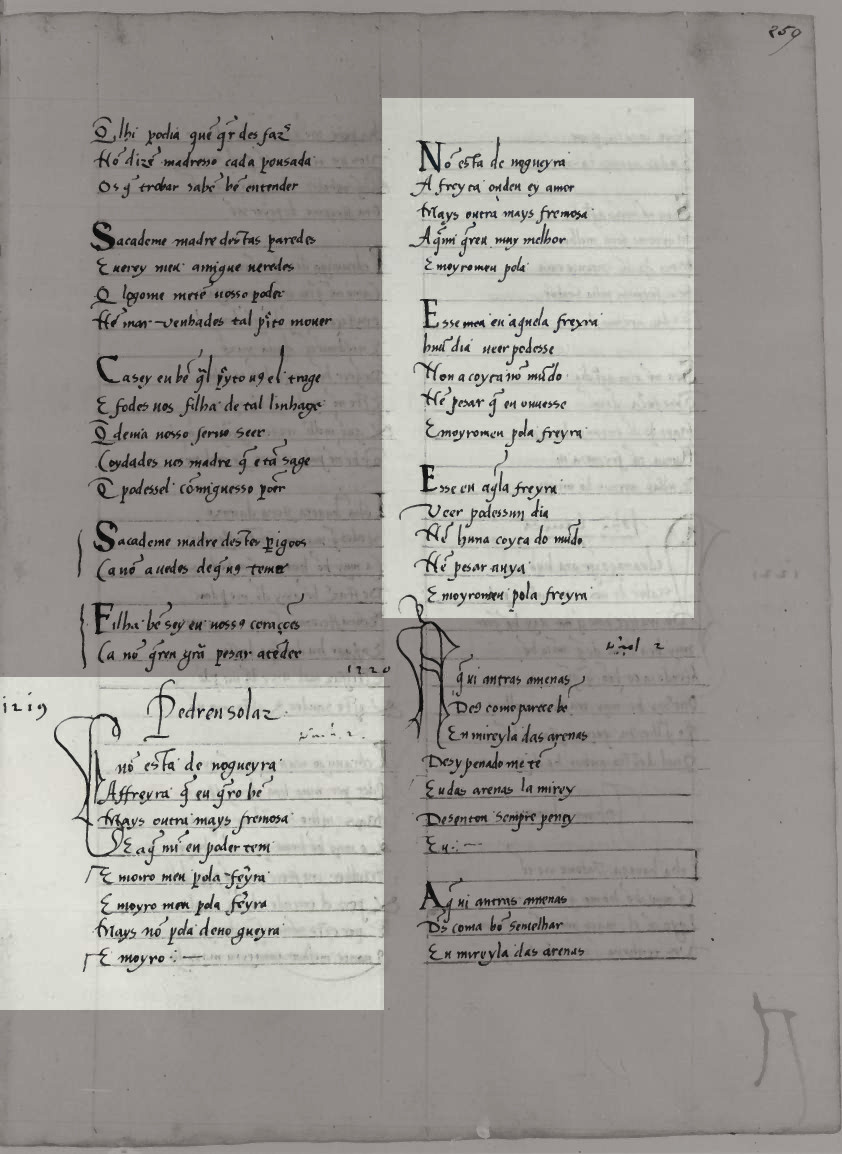 259
Q̃ lhi podia quẽ q̃r des faz̃
Nõ dizẽ madresso cada pousada
Os q̃ trobar sabẽ bẽ entender
Sacademe madre destas paredes
E uerey meu amigue ueredes
Q logome metẽ uosso poder
Nẽ mar uenhades tal p̃ito mouer
Ca sey eu bẽ q̃l p̃yto u9 el trage
E sodes uos filha de tal linhage
Q̃ deuia uosso seruo seer
Coydades uos madre q̃ e tã sage
Q̃ podessel comiguesso poer
Sacademe madre destes p̃igoos
Ca nõ auedes de q̃ u9 temer
Filha bẽ sey eu uoss9 corações
Ca nõ q̃ren g̃rã pesar atẽder
1220
1219
Pedrensolaz
nõ esta de nogueyra
Affreyra q̃ eu q̃ro bẽ
Mays outra mays fremosa
E a q̃ mi en poder tem
E moiro meu pola feyra
E moyro meu pola feyra
Mays nõ pola de no gueyra
E moyro :—
Nõ esta de nogueyra
A freyra onden ey amor
Mays outra mays fremosa
A q̃mi q̃reu muy melhor
E moyromeu pola
E sse mea eu aquela freyra
huũ dia ueer podesse
Non a coyta nõ mũdo
Nẽ pesar q̃ eu ouuesse
E moyromeu pola freyra
E sse eu aq̃la freyra
Veer podessun dia
Nẽ huna coyta do mũdo
Nẽ pesar auya
E moyromeu pola freyra
2
q̃ ui antras amenas
De9 como parece bẽ
E u mireyla das arenas
Desy penado me tẽ
Eu das arenas la mirey
Desenton sempre peney
Eu :—
A q̃ ui antras amenas
Ds̃ coma bẽ semelhar
E u mireyla das arenas